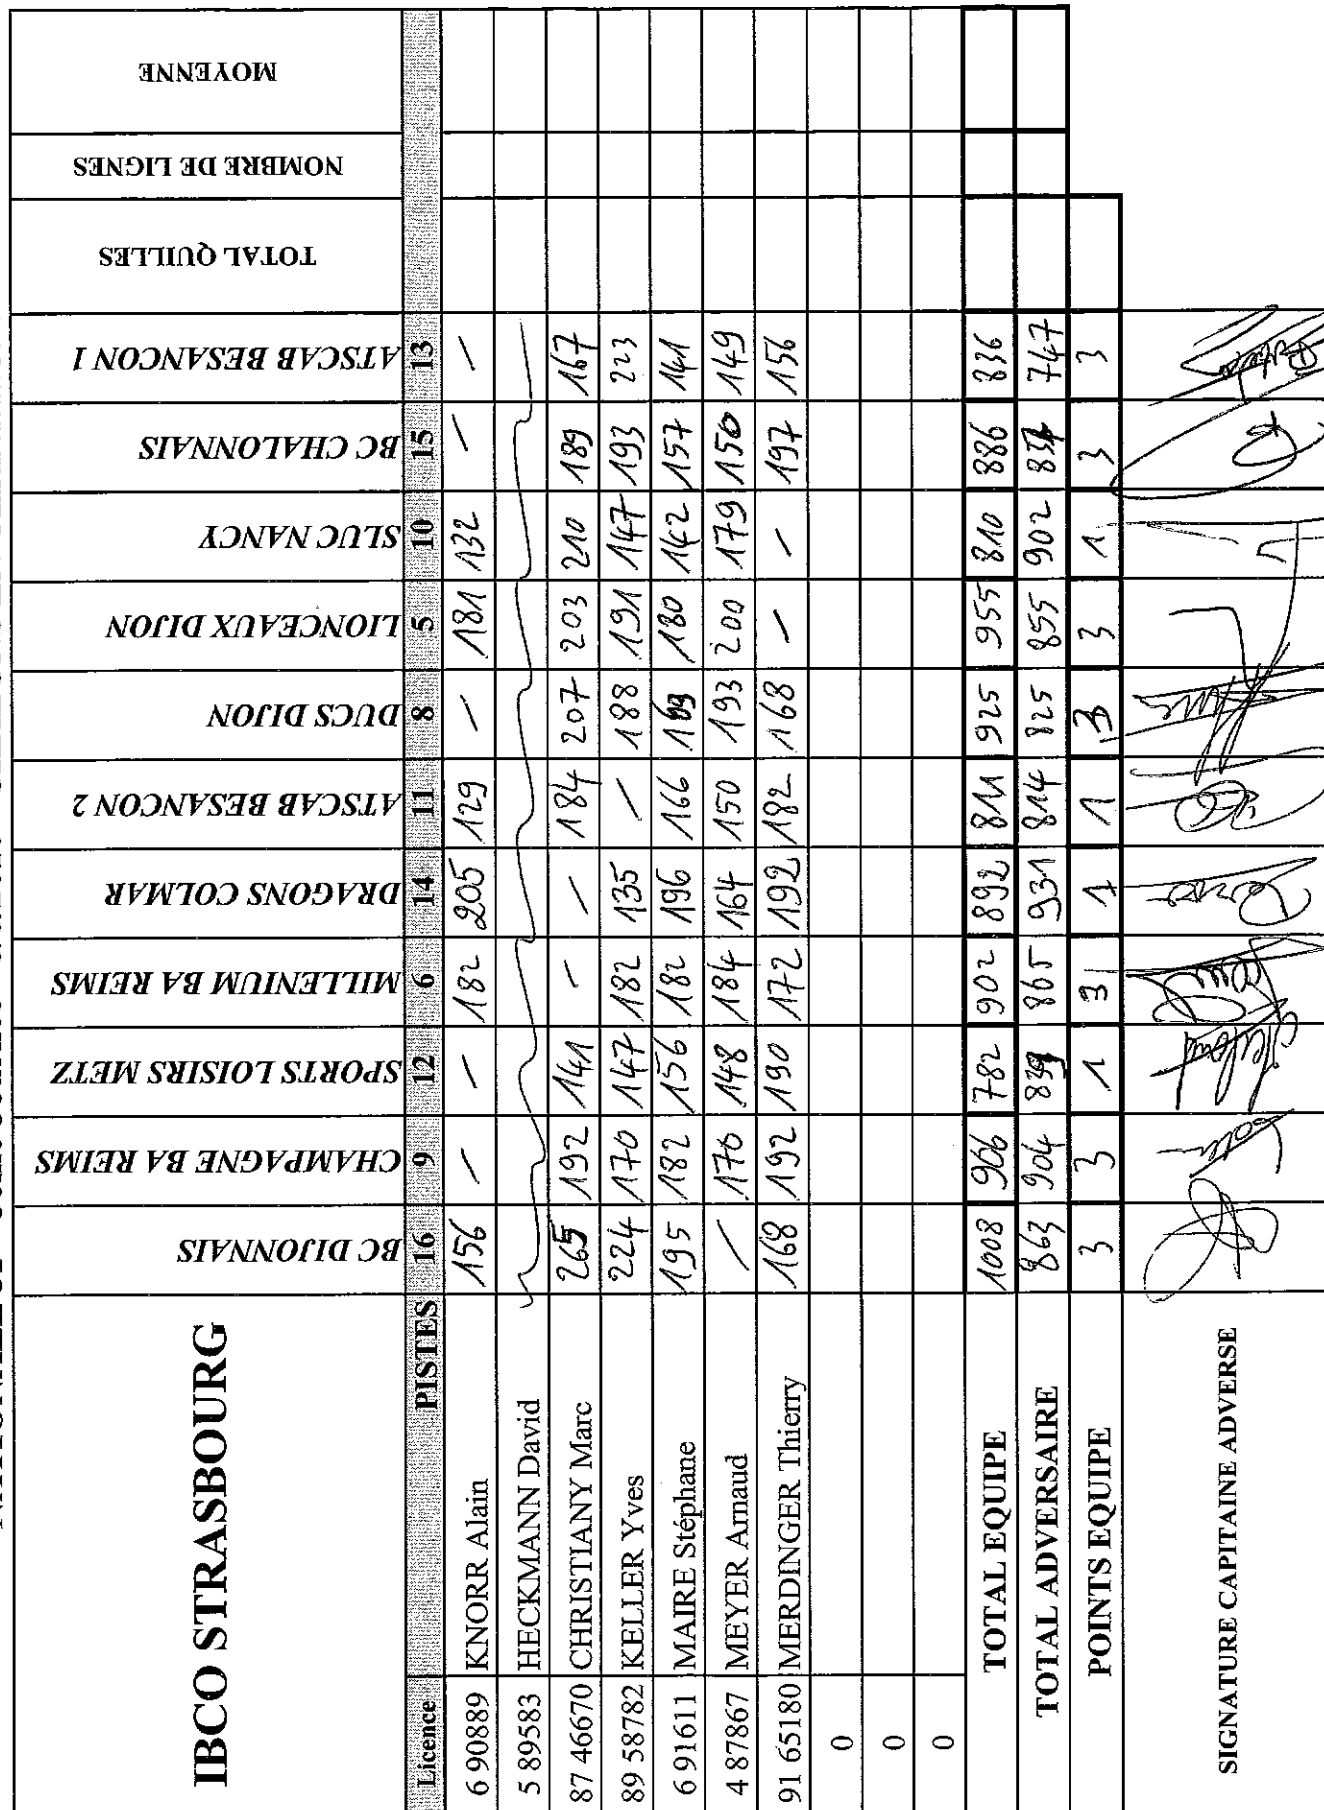 IBCO STRASBOURG
BC DIJONNAIS
CHAMPAGNE BA REIMS
SPORTS LOISIRS METZ
MILLENIUM BA REIMS
DRAGONS COLMAR
ATSCAB BESANCON 2
DUCS DIJON
LIONCEAUX DIJON
SLUC NANCY
BC CHALONNAIS
ATSCAB BESANCON 1
TOTAL QUILLES
NOMBRE DE LIGNES
MOYENNE
Licence PISTES 16 9 12 6 14 11 8 5 10 15 13
6 90889 KNORR Alain 156 / / 182 205 129 / 181 132 / /
5 89583 HECKMANN David
87 46670 CHRISTIANY Marc 265 192 141 / / 184 207 203 210 189 167
89 58782 KELLER Yves 224 170 147 182 135 / 188 191 147 193 223
6 91611 MAIRE Stéphane 195 182 156 182 196 166 169 180 142 157 141
4 87867 MEYER Arnaud / 170 148 184 164 150 193 200 179 150 149
91 65180 MERDINGER Thierry 168 192 190 172 192 182 168 / / 197 156
0
0
0
TOTAL EQUIPE 1008 906 782 902 892 811 925 955 810 886 836
TOTAL ADVERSAIRE 863 904 839 865 931 814 825 855 902 834 747
POINTS EQUIPE 3 3 1 3 1 1 3 3 1 3 3
SIGNATURE CAPITAINE ADVERSE